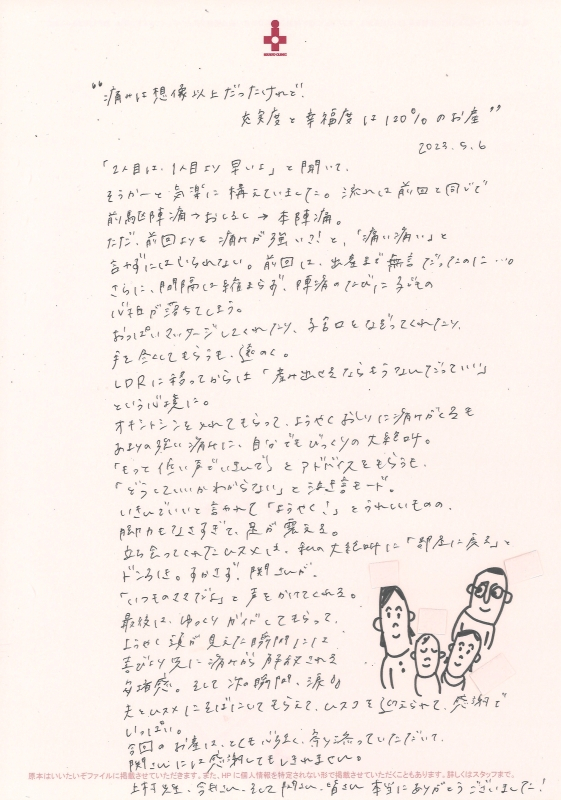 "痛みは想像以上だったけれど、
充実度と幸福度は120%のお産"
2023.5.6
「2人目は、1人目より早いよ」と聞いて、
そうかーと気楽に構えていました。流れは前回と同じで
前駆陣痛→おしるし→本陣痛。
ただ、前回よりも痛みが強い?!と、「痛い痛い」と
言わずにはいられない。前回は、出産まで無言だったのに…。
さらに、間隔は縮まらず、陣痛のたびに子どもの
心拍が落ちてしまう。
おっぱいマッサージしてくれたり、子宮口をなぞってくれたり、
手を尽くしてもらうも、遠のく。
LDRに移ってからは「産み出せるならもうなんだっていい」
という心境に。
オキシトシンを入れてもらって、ようやくおしりに痛みがくるも
あまりの強い痛みに、自分でもびっくりの大絶叫。
「もって低い声でいきんで」とアドバイスをもらうも、
「どうしていいかわからない」と迷言モード。
いきんでいいと言われて「ようやく!」とうれしいものの、
脚力もなさすぎで、足が震える。
立ち会ってくれたムスメは、私の大絶叫に「部屋に戻る」と
ドン引き。すかさず、関さんが、
「いつものママだよ」と声をかけてくれる。
最後は、ゆっくりガイドしてもらって、
ようやく頭が見えた瞬間には
喜びより先に痛みから解放される
安堵感。そして次の瞬間、涙。
夫とムスメにそばにいてもらえて、ムスコを迎えられて、感謝で
いっぱい。
今回のお産は、とても心強く、寄り添っていただいて、
関さんには感謝してもしきれません。
上村先生、今村さん、そして関さん、皆さん本当にありがとうございました!
原本はいいたいぞファイルに掲載させていただきます。また、HPに個人情報を特定されない形で掲載させていただくこともあります。詳しくはスタッフまで。